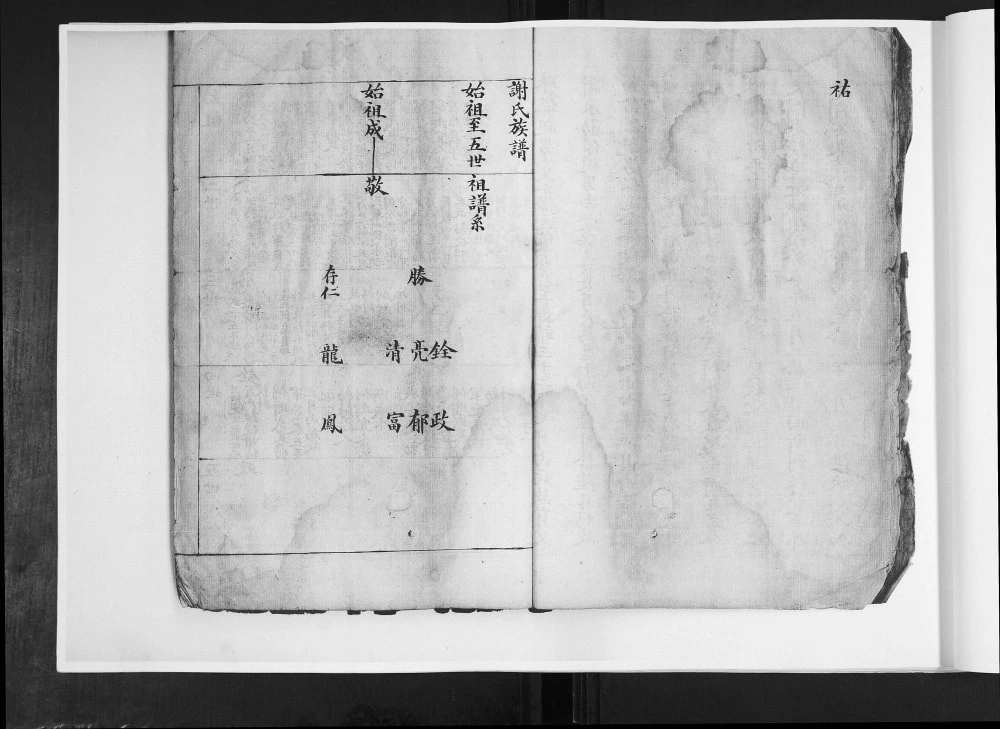 祐
謝氏族譜
始祖至五世祖譜系
始祖成
敬
勝
存仁
銓
亮
清
龍
政
郁
富
鳳